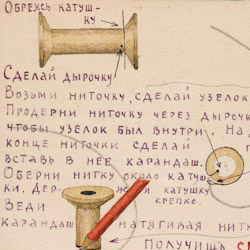 Обрежь катуш-
ку
Сделай дырочку
Возьми ниточку, сделай узелок
Продерни ниточку через дырочк
чтобы узелок был внутри. На
конце ниточки сделай
вставь в нее карандаш.
Оберни нитку около катуш
ки. Дер- и катушку
крепко.
Веди
карандаш натягивая нит
Получишь